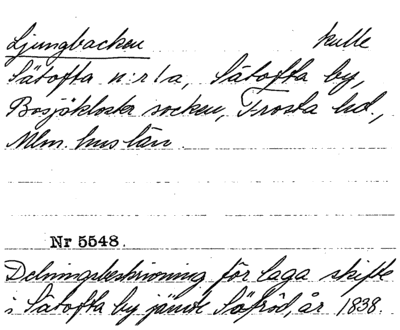 Ljungbacken kulle
Sätofta n:r 1a, Sätofta by,
Bosjökloster socken, Frosta hd.,
Mlm. hus län.
Nr 5548.
Delningsbeskrivning för laga skifte
i Sätofta by jämte Söfröd, år 1838.